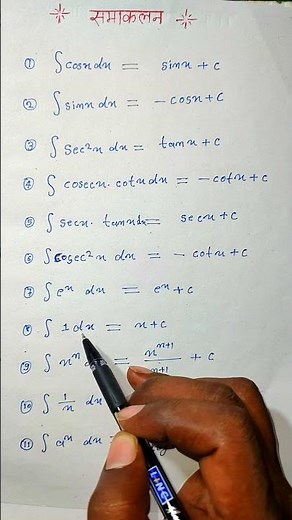 समाकलन
① ∫cosx dx = sinx + c
② ∫sinx dx = -cosx + c
③ ∫sec²x dx = tanx + c
④ ∫cosecx. cotx dx = -cotx + c
⑤ ∫secx. tanx dx = secx + c
⑥ ∫cosec²x dx = - cotx + c
⑦ ∫eˣ dx = eˣ + c
⑧ ∫1 dx = x + c
⑨ ∫xⁿ = xⁿ⁺¹/n+1 + c
⑩ ∫1/x dx
⑪ ∫aˣ dx =
LINC